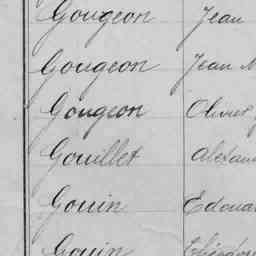 Gougeon Jean
Gougeon Jean M
Gougeon Olivier
Gouillet Alexan
Gouin Edoua
Gouin Théodor